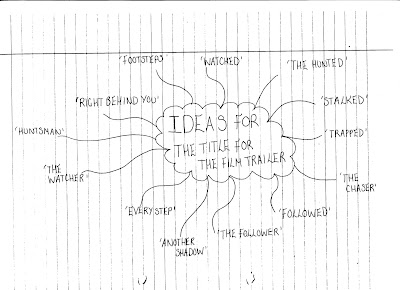 'FOOTSTEPS'
'WATCHED'
'THE HUNTED'
'RIGHT BEHIND YOU'
'STALKED'
'HUNTSMAN'
IDEAS FOR
THE TITLE FOR
THE FILM TRAILER
'TRAPPED'
'THE
WATCHER'
'THE
CHASER'
'EVERY STEP'
'FOLLOWED'
'ANOTHER
SHADOW'
'THE FOLLOWER'